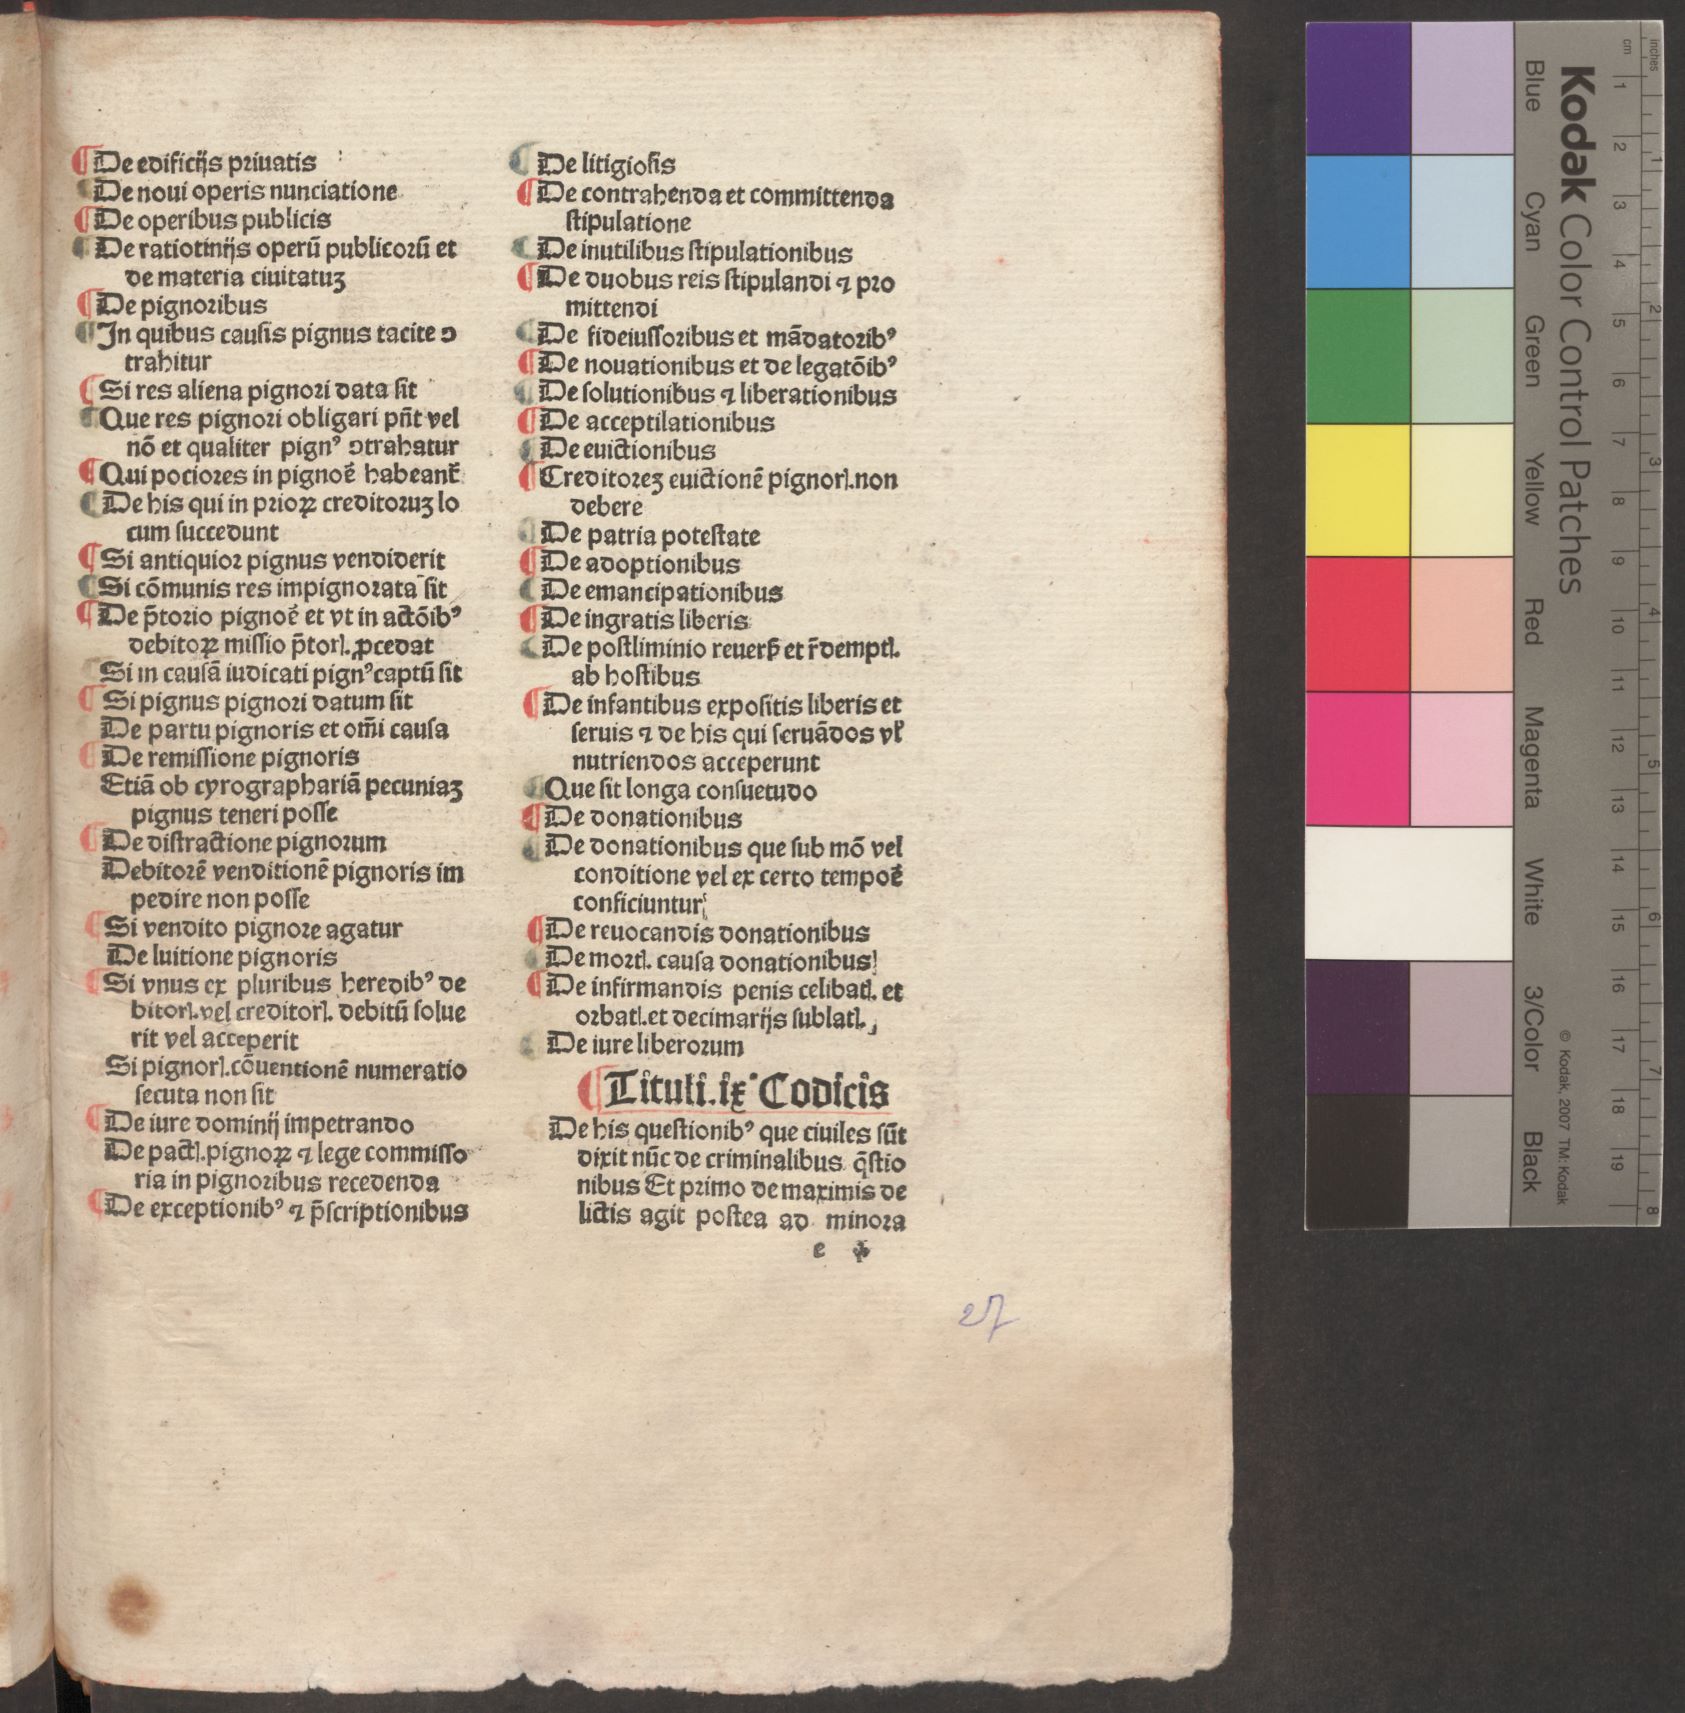 De edificijs priuatis
De noui operis nunciatione
De operibus publicis
De ratiotinijs operū publicorū et
de materia ciuitatuꝫ
De pignoribus
In quibus causis pignus tacite ↄ
trahitur
Si res aliena pignori data sit
Que res pignori obligari pn̄t vel
nō et qualiter pignꝰ ↄtrahatur
Qui pociores in pignoē habeant᷑
De his qui in prioꝝ creditoruꝫ lo
cum succedunt
Si antiquior pignus vendiderit
Si cōmunis res impignorata sit
De p̄torio pignoē et vt in actōibꝰ
debitoꝝ missio p̄torꝭ. ꝓcedat
Si in causā iudicati pignꝰ captū sit
Si pignus pignori datum sit
De partu pignoris et om̄i causa
De remissione pignoris
Etiā ob cyrographariā pecuniaꝫ
pignus teneri posse
De distractione pignorum
Debitorē venditionē pignoris im
pedire non posse
Si vendito pignore agatur
De luitione pignoris
Si vnus ex pluribus heredibꝰ de
bitorꝭ. vel creditorꝭ. debitū solue
rit vel acceperit
Si pignorꝭ. cōuentionē numeratio
secuta non sit
De iure dominij impetrando
De pactꝭ. pignoꝝ ⁊ lege commisso
ria in pignoribus recedenda
De exceptionibꝰ ⁊ p̄scriptionibus
De litigiosis
De contrahenda et committenda
stipulatione
De inutilibus stipulationibus
De duobus reis stipulandi ⁊ pro
mittendi
De fideiussoribus et mādatoribꝰ
De nouationibus et de legatōibꝰ
De solutionibus ⁊ liberationibus
De acceptilationibus
De euictionibus
Creditoreꝫ euictionē pignorꝭ. non
debere
De patria potestate
De adoptionibus
De emancipationibus
De ingratis liberis
De postliminio reuerẜ et r̄demptꝭ.
ab hostibus
De infantibus expositis liberis et
seruis ⁊ de his qui seruādos vl̓
nutriendos acceperunt
Que sit longa consuetudo
De donationibus
De donationibus que sub mō vel
conditione vel ex certo tempoē
conficiuntur
De reuocandis donationibus
De mortꝭ. causa donationibus
De infirmandis penis celibatꝭ. et
orbatꝭ. et decimarijs sublatꝭ.
De iure liberorum
Tituli. ix Codicis
De his questionibꝰ que ciuiles sūt
dixit nūc de criminalibus q̄stio
nibus Et primo de maximis de
lictis agit postea ad minora
e
27
Kodak Color Control Patches
Blue
Cyan
Green
Yellow
Red
Magenta
White
3/Color
Black
© Kodak, 2007 TM: Kodak
cm 1 2 3 4 5 6 7 8 9 10 11 12 13 14 15 16 17 18 19
inches 1 2 3 4 5 6 7 8